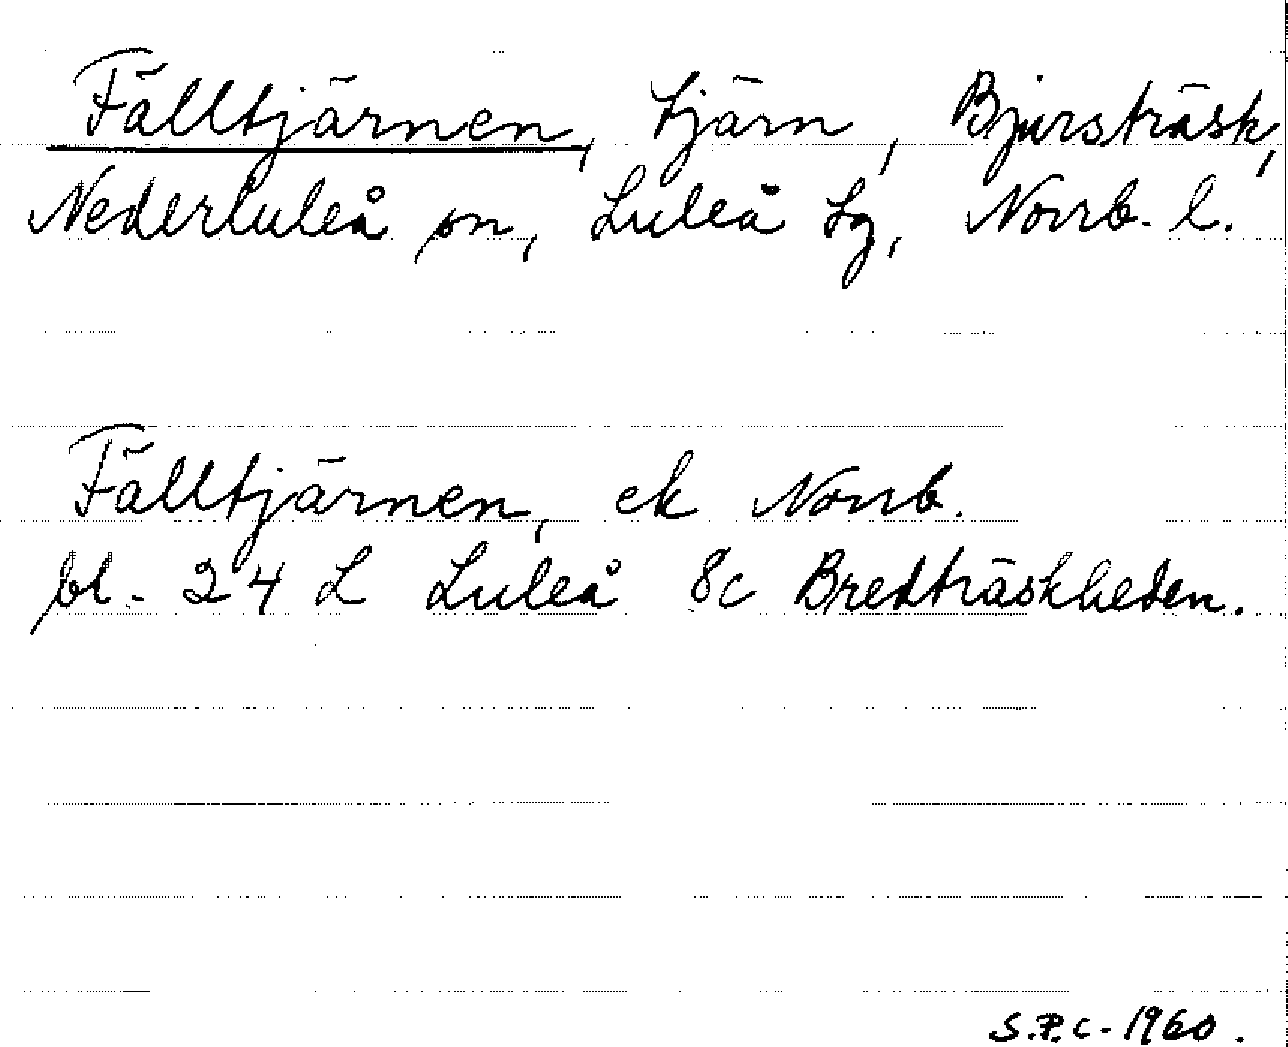 Fälltjärnen, tjärn, Bjursträsk,
Nederluleå sn, Luleå tg, Norrb. l.
Fälltjärnen, ek Norrb.
bl. 24 L Luleå 8c Bredträskheden.
S.P.C. 1960.